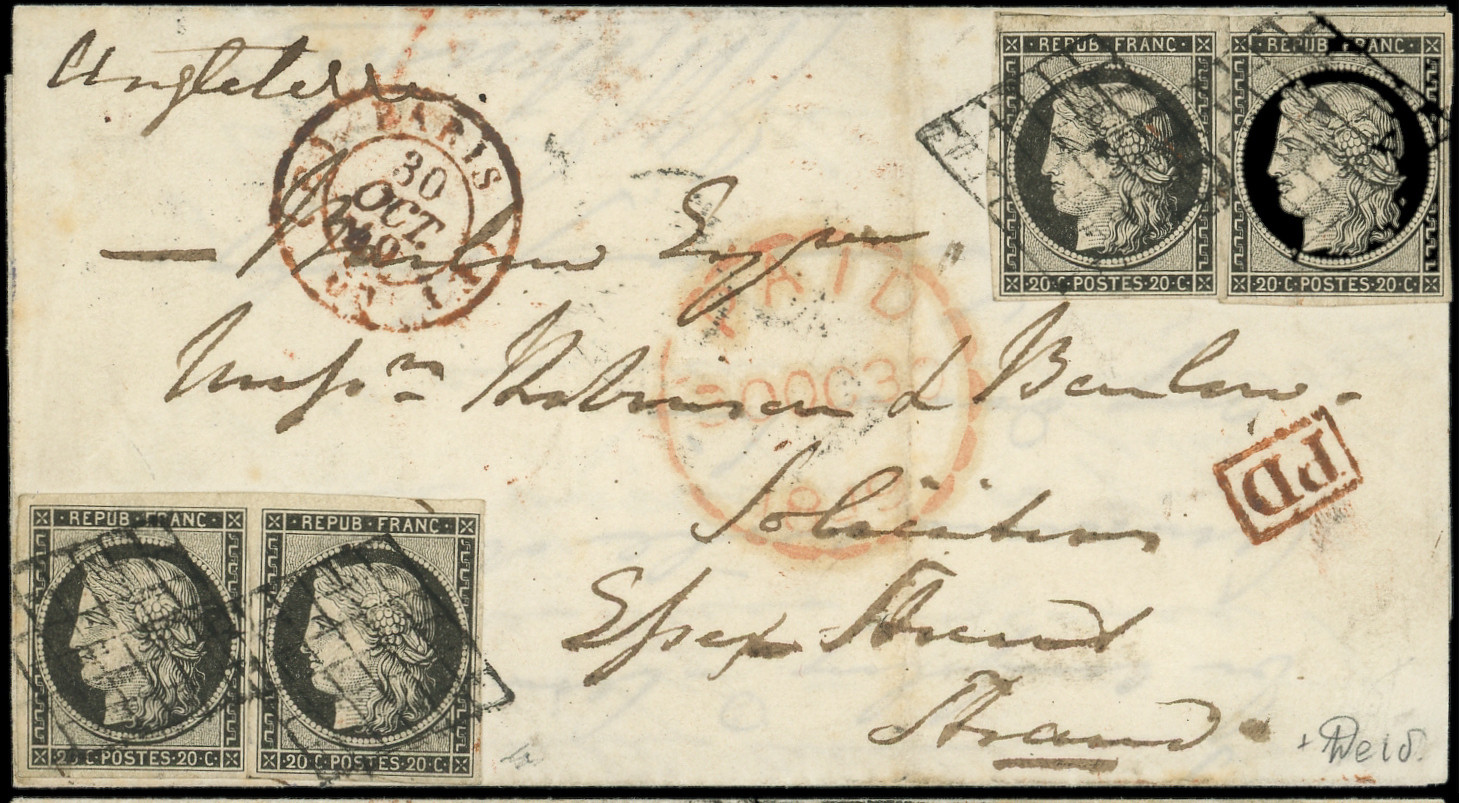 Angleterre.
REPUB. FRANC.
REPUB. FRANC.
20·C·POSTES·20·C·
20·C·POSTES·20·C·
PARIS
30
OCT.
PAID
30OC30
— Barlow Esqre
Messrs Robinson & Barlow.
Solicitors
Essex Street
Strand.
PD
REPUB·FRANC·
REPUB·FRANC·
20·C·POSTES·20·C·
20·C·POSTES·20·C·